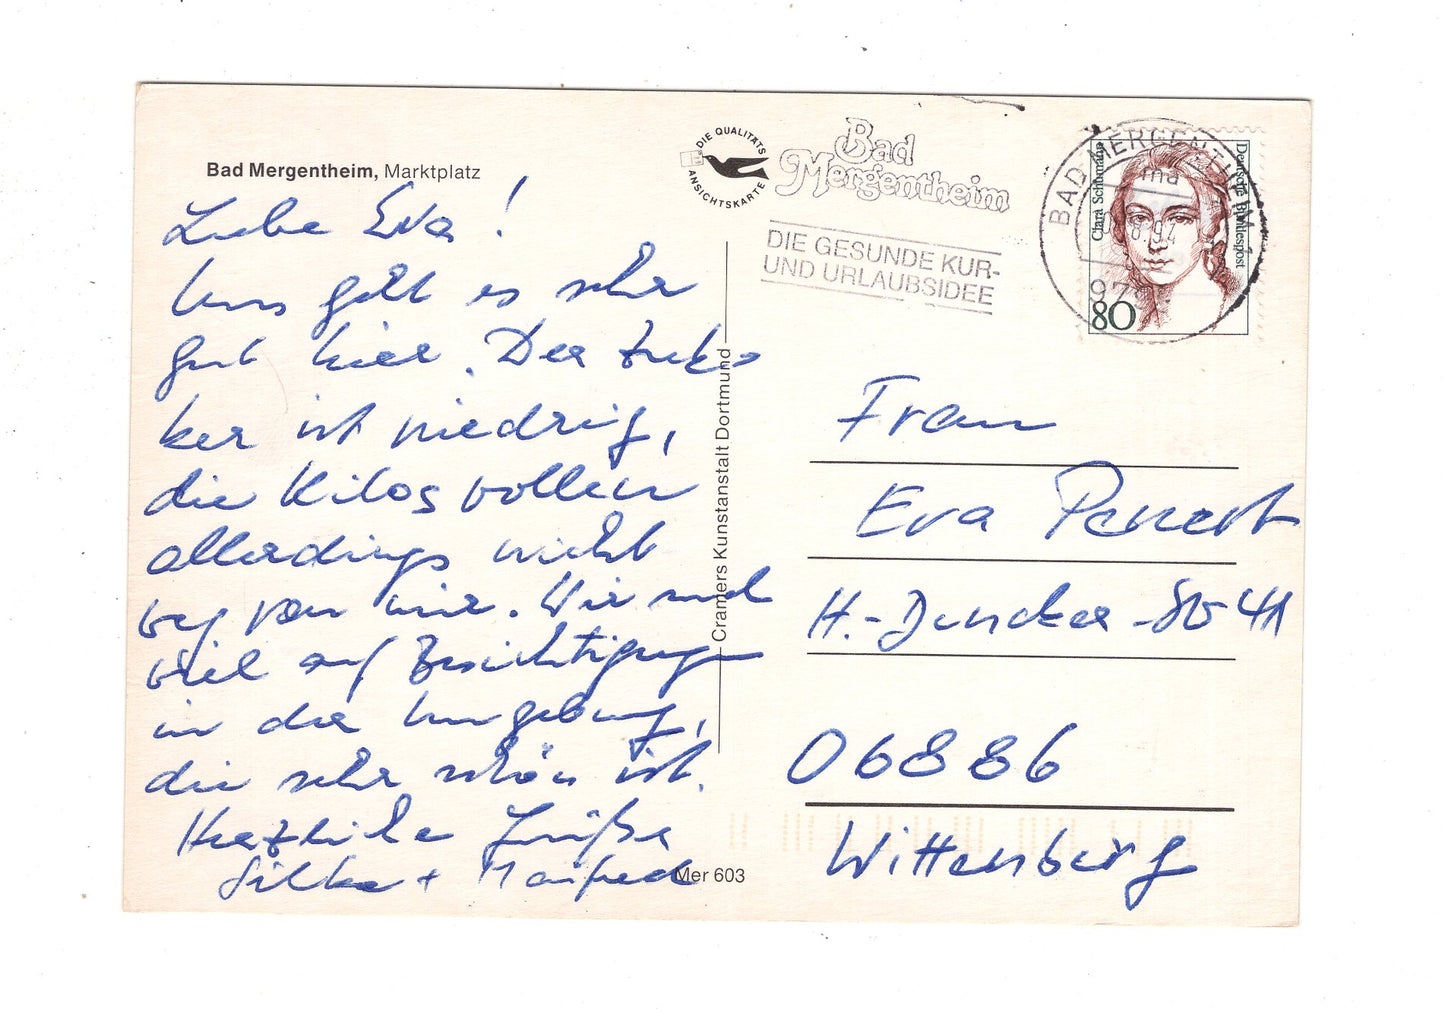 Bad Mergentheim, Marktplatz
Liebe Eva!
Uns geht es sehr
gut hier. Der Zuk-
ker ist niedrig,
die Kilos wollen
allerdings nicht
weg von mir. Wir sind
viel auf Besichtigungen
in der Umgebung,
die sehr schön ist.
Herzliche Grüße
Silke + Manfred
DIE QUALITÄTS
ANSICHTSKARTE
Cramers Kunstanstalt Dortmund
Mer 603
Bad
Mergentheim
DIE GESUNDE KUR-
UND URLAUBSIDEE
BAD MERGENTHEIM 1
Clara Schumann
Deutsche Bundespost
80
Frau
Eva
H.-Duncker-Str 41
06886
Wittenberg